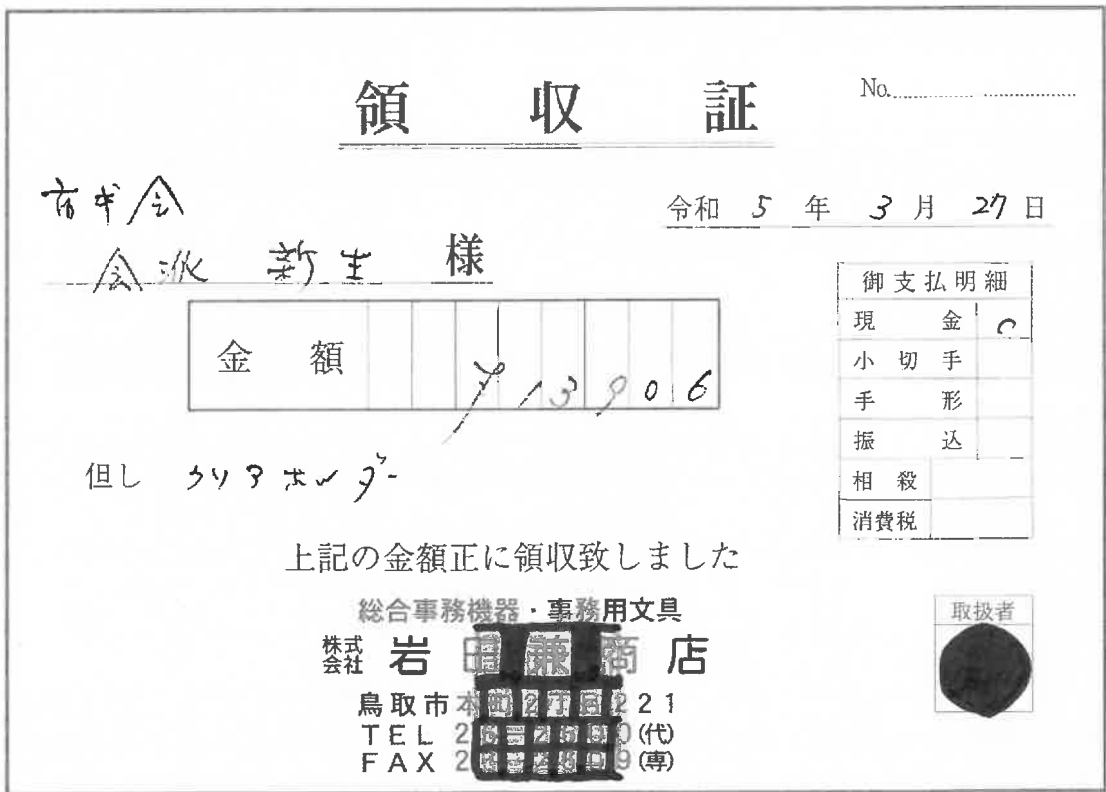 領収証
No.
会派 新生 様
令和 5 年 3 月 27 日
金額 ¥13906
但し クリアホルダー
御支払明細
現金 ○
小切手
手形
振込
相殺
消費税
上記の金額正に領収致しました
総合事務機器・事務用文具
株式会社 岩田兼商店
鳥取市本町2丁目221
TEL (代)
FAX (専)
取扱者